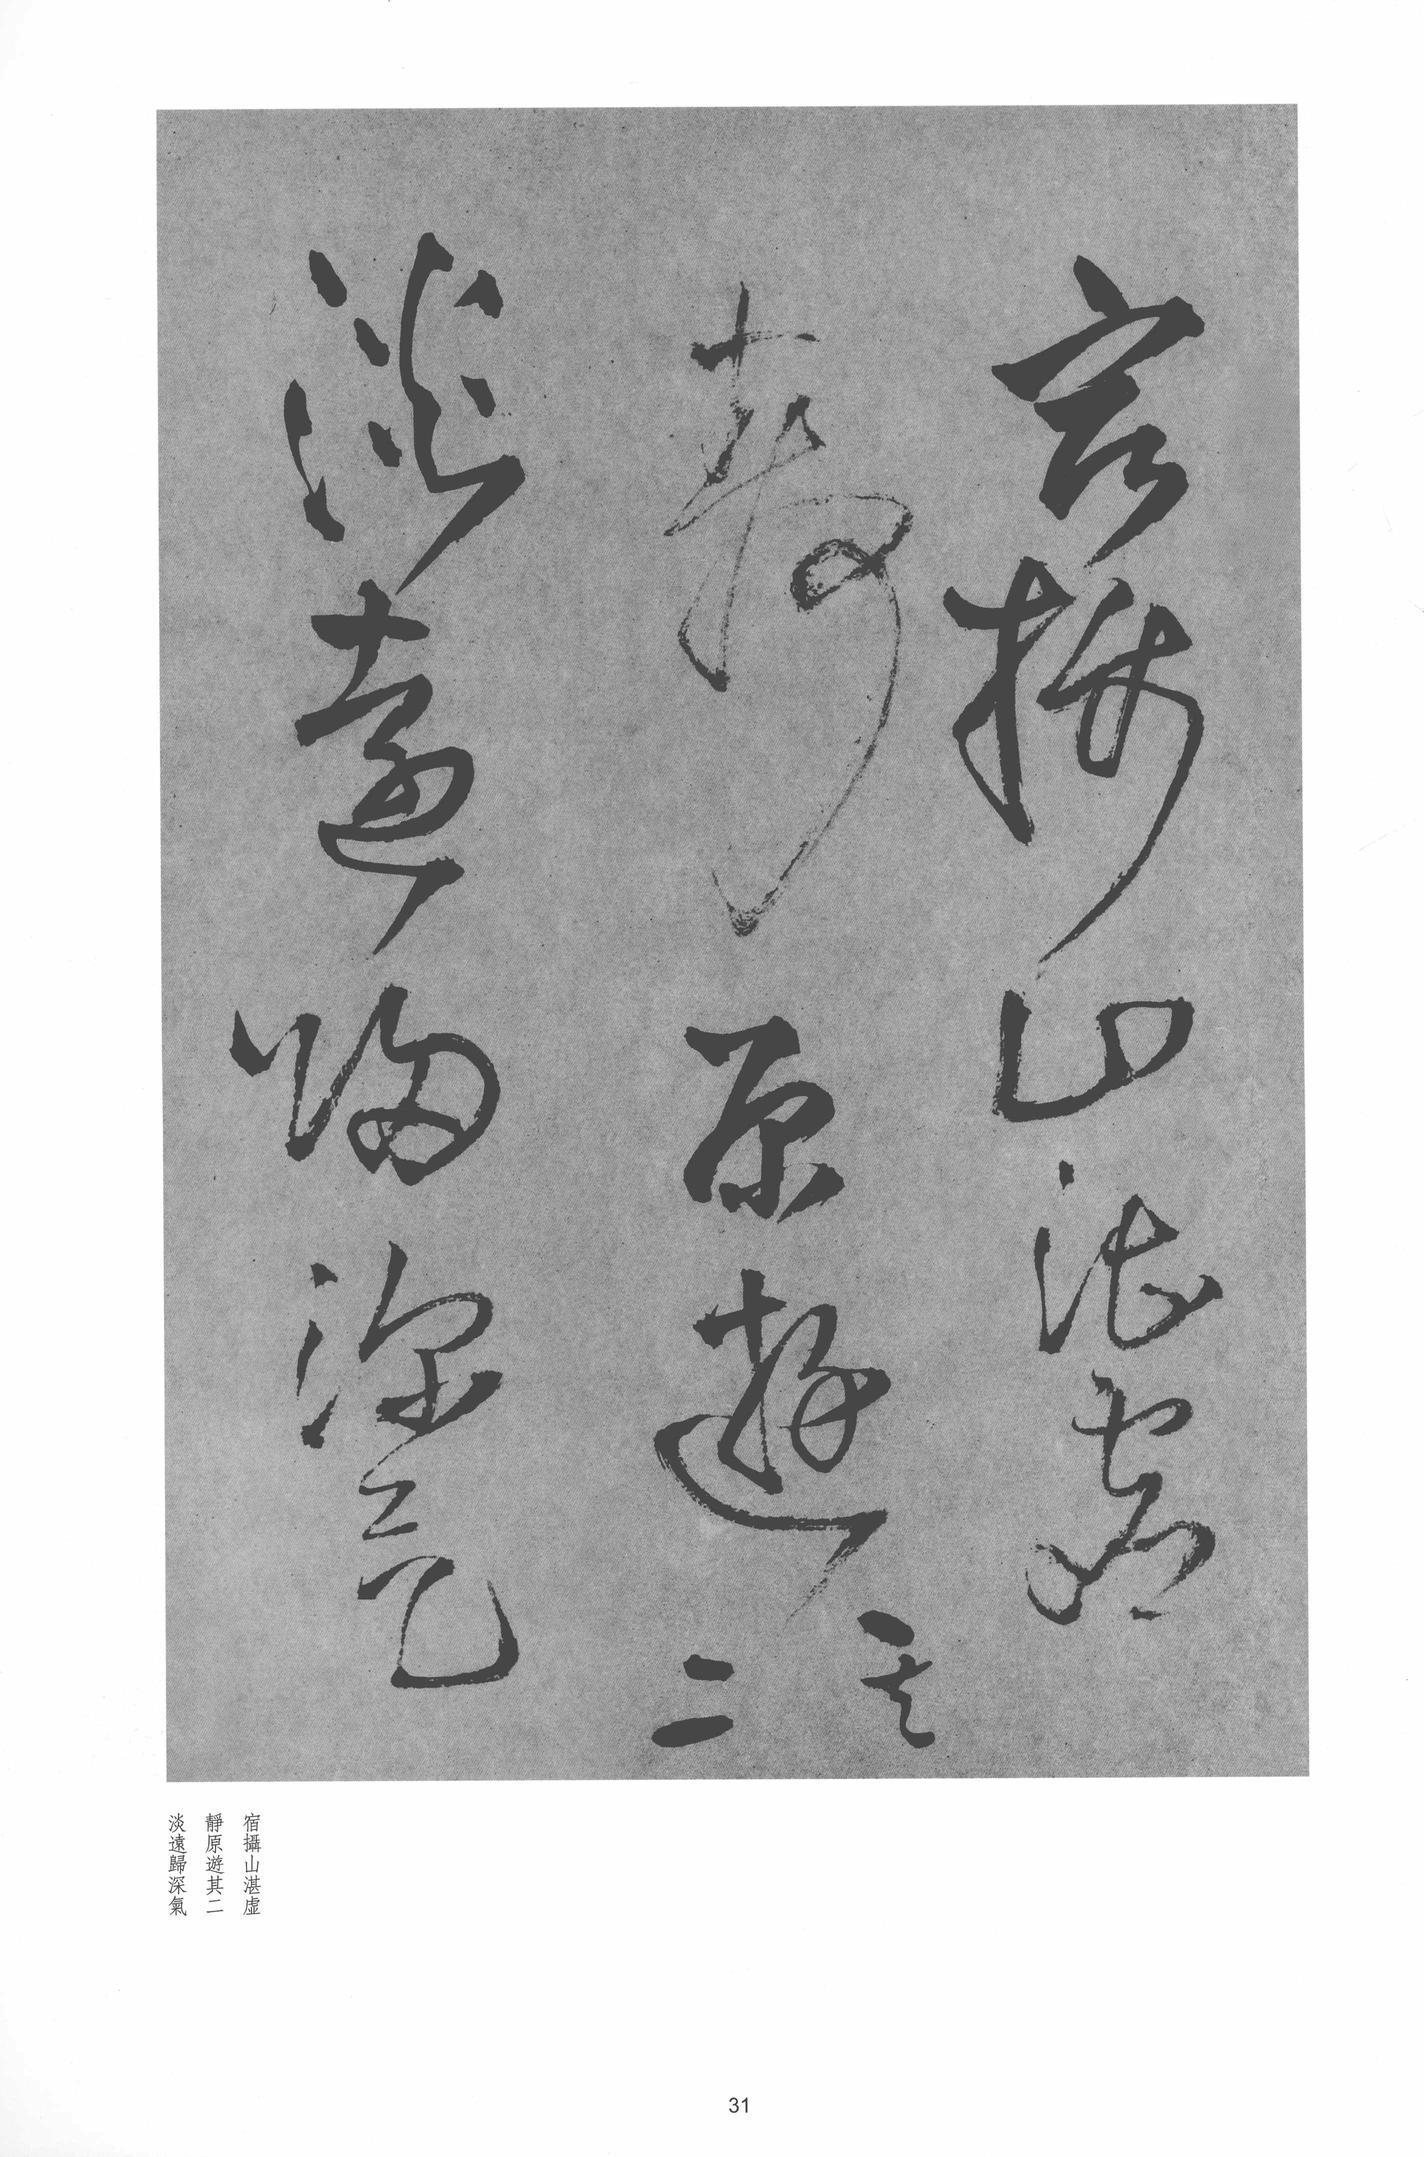 宿攝山湛虛
靜原遊其二
淡遠歸深氣
宿攝山湛虛
靜原遊其二
淡遠歸深氣
31